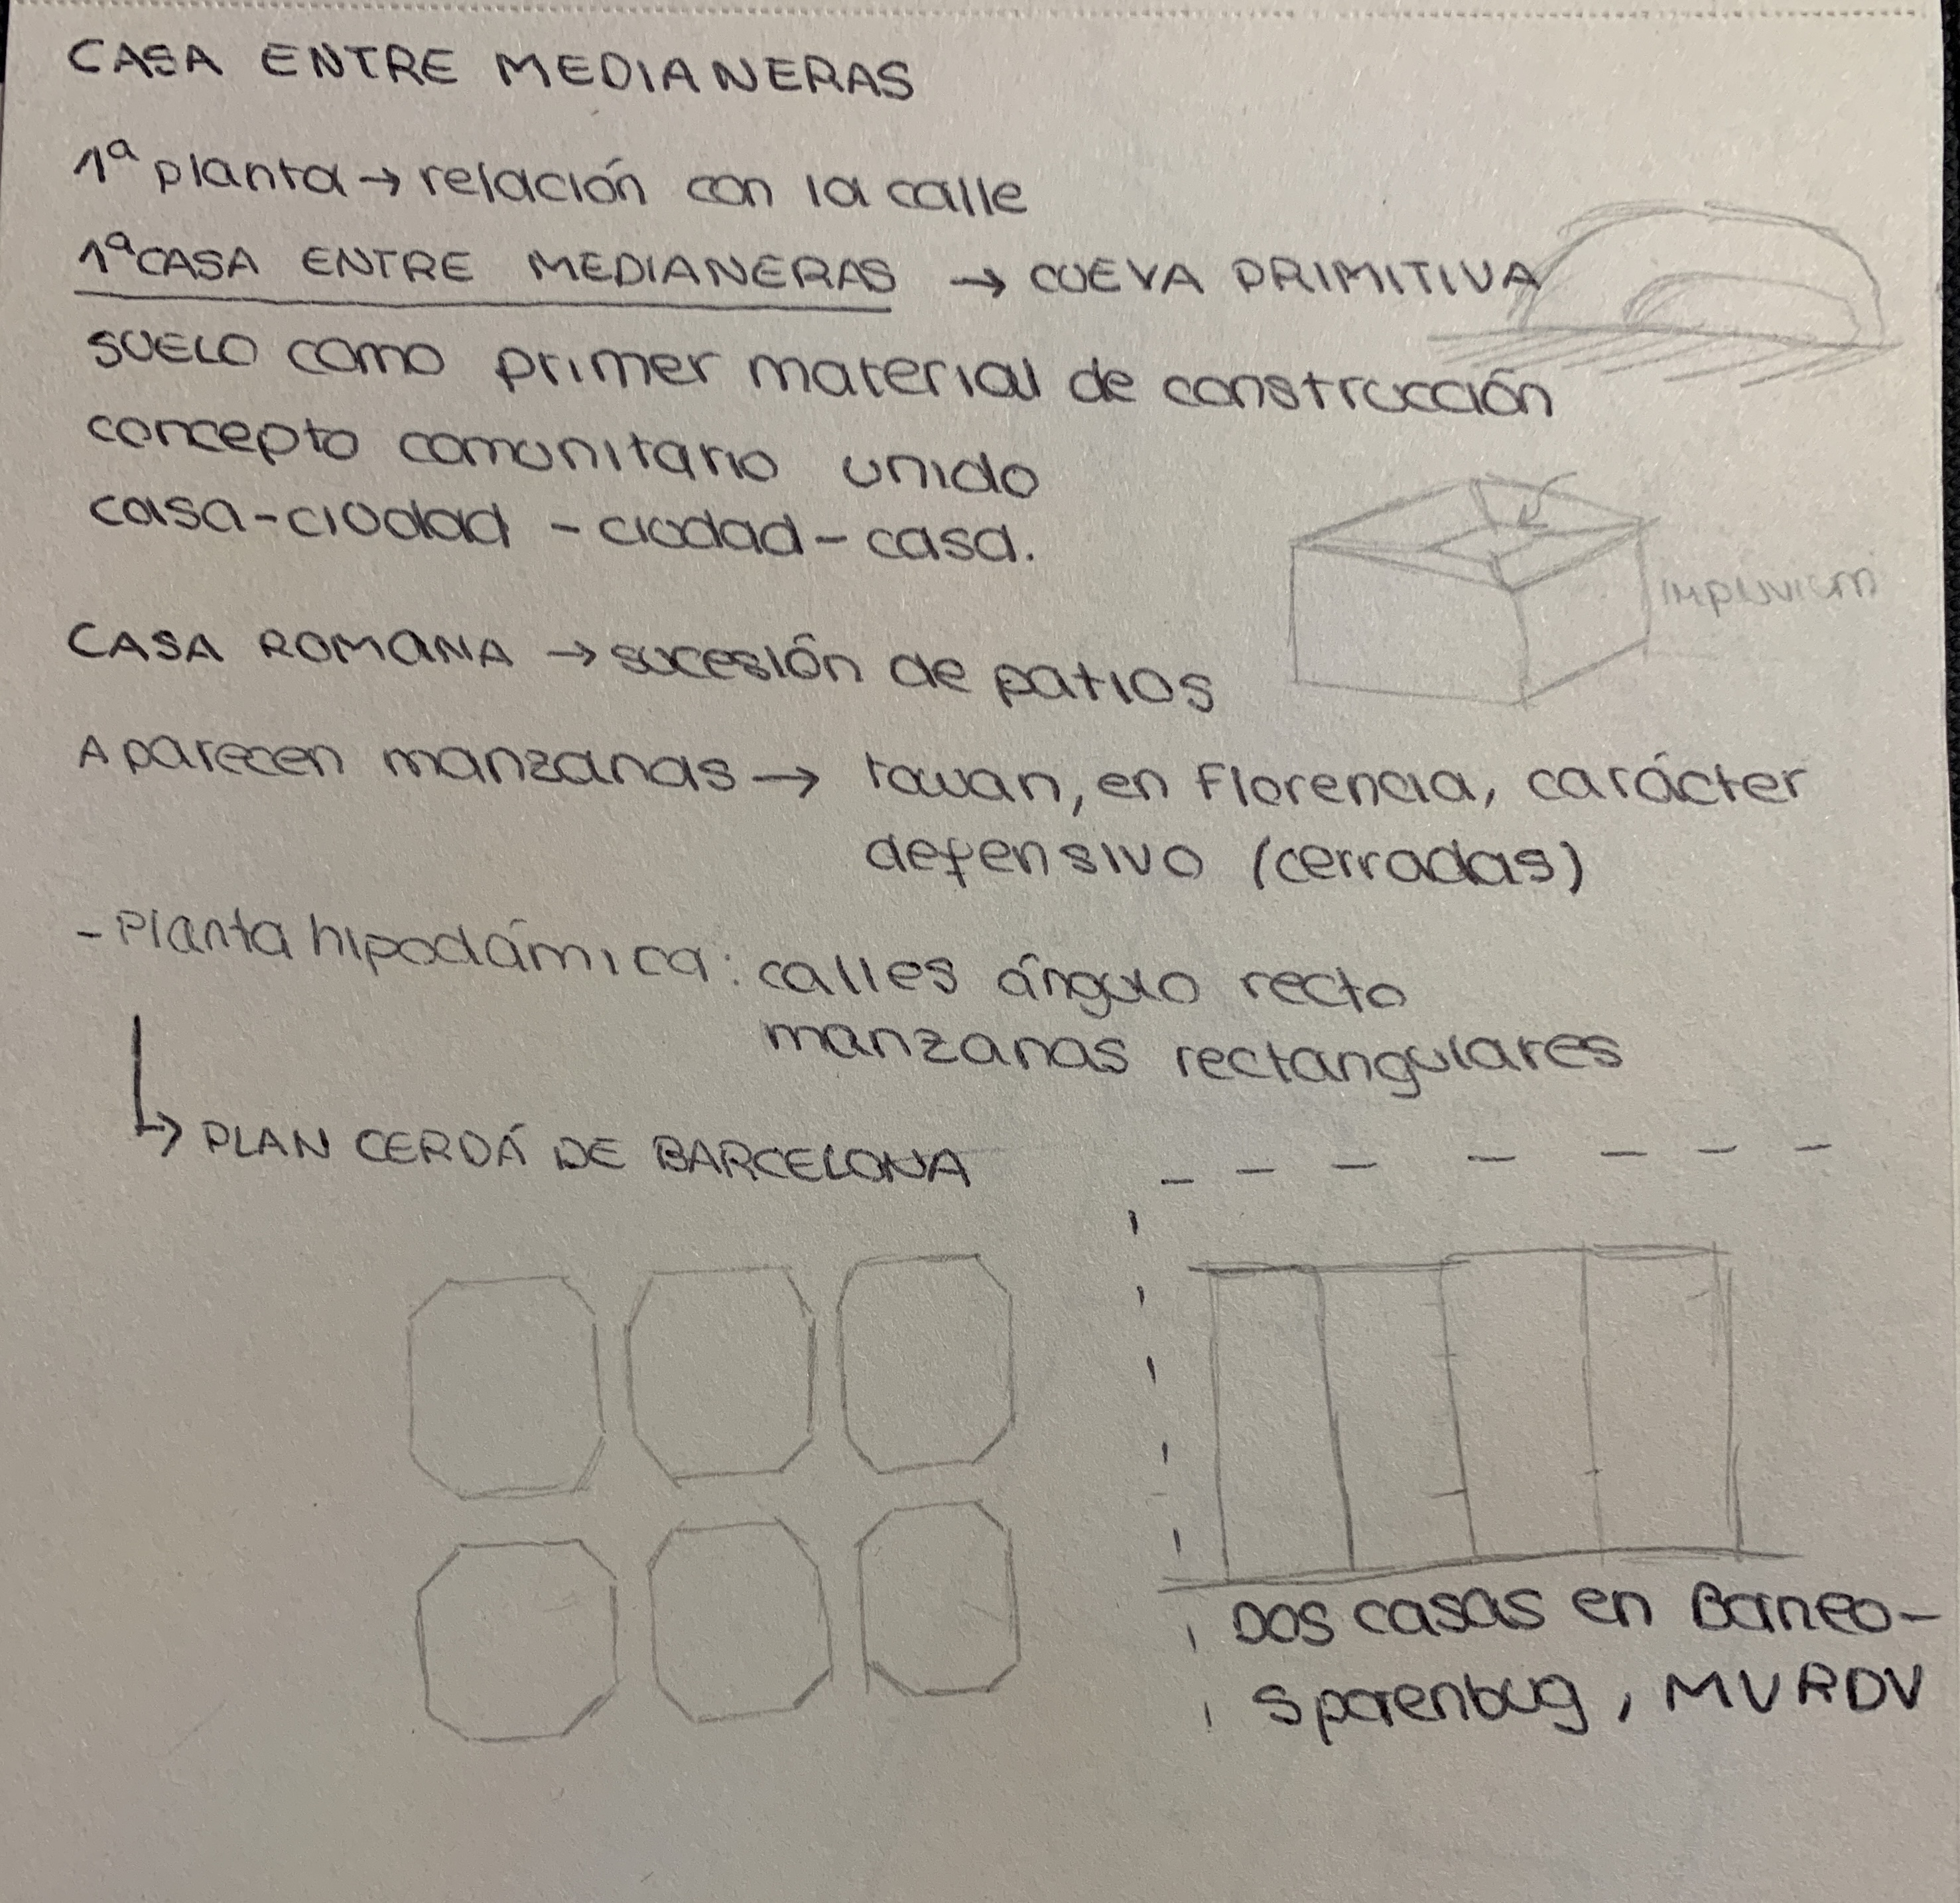 CASA ENTRE MEDIANERAS
1ª planta → relación con la calle
1ª CASA ENTRE MEDIANERAS → CUEVA PRIMITIVA
SUELO como primer material de construcción
concepto comunitario unido
casa-ciudad - ciudad-casa.
IMPLUVIUM
CASA ROMANA → sucesión de patios
Aparecen manzanas → en Florencia, carácter
defensivo (cerradas)
- Planta hipodámica: calles ángulo recto
manzanas rectangulares
↳ PLAN CERDÁ DE BARCELONA
DOS casas en Borneo-
Sporenbug, MVRDV